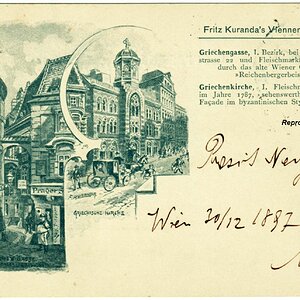 Fritz Kuranda's Wienner
Griechengasse, I. Bezirk, bei
strasse 22 und Fleischmark
durch das alte Wiener
»Reichenbergerbei
Griechenkirche, I. Fleischm
im Jahre 1787, sehenswerth
Façade im byzantinischen St
Repro
Prosit Ne
Wien 30/12 1897
GRIECHISCHE KIRCHE